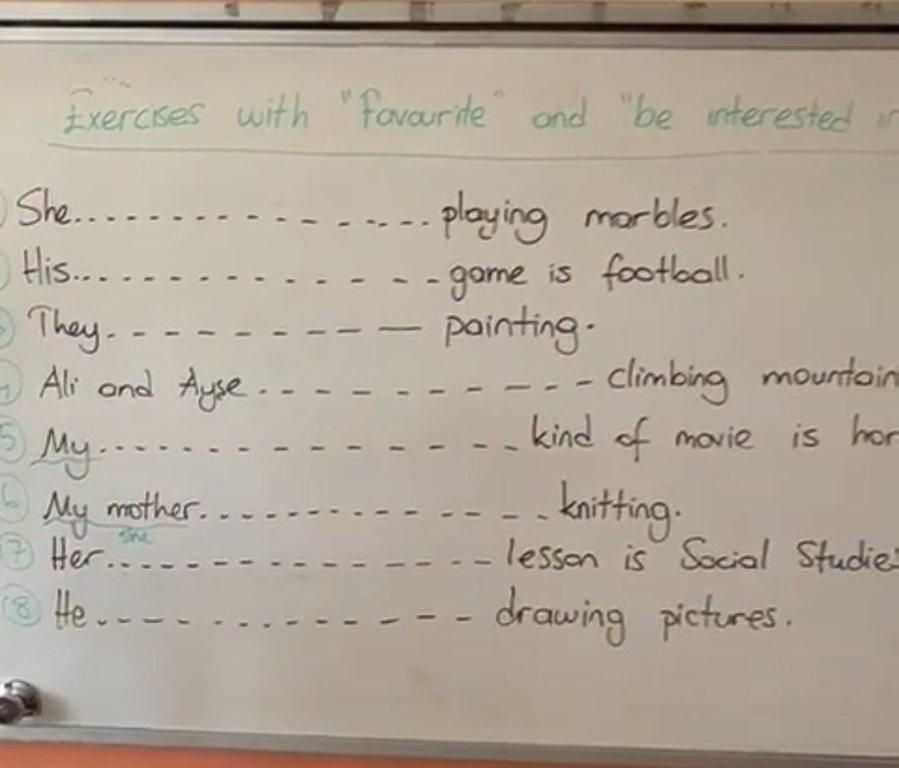 Exercises with "favourite" and "be interested in
She.................. playing marbles.
His.................. game is football.
They.................. painting.
4 Ali and Ayşe.................. climbing mountain
5 My.................. kind of movie is hor
6 My mother.................. knitting.
she
7 Her.................. lesson is Social Studies
8 He.................. drawing pictures.